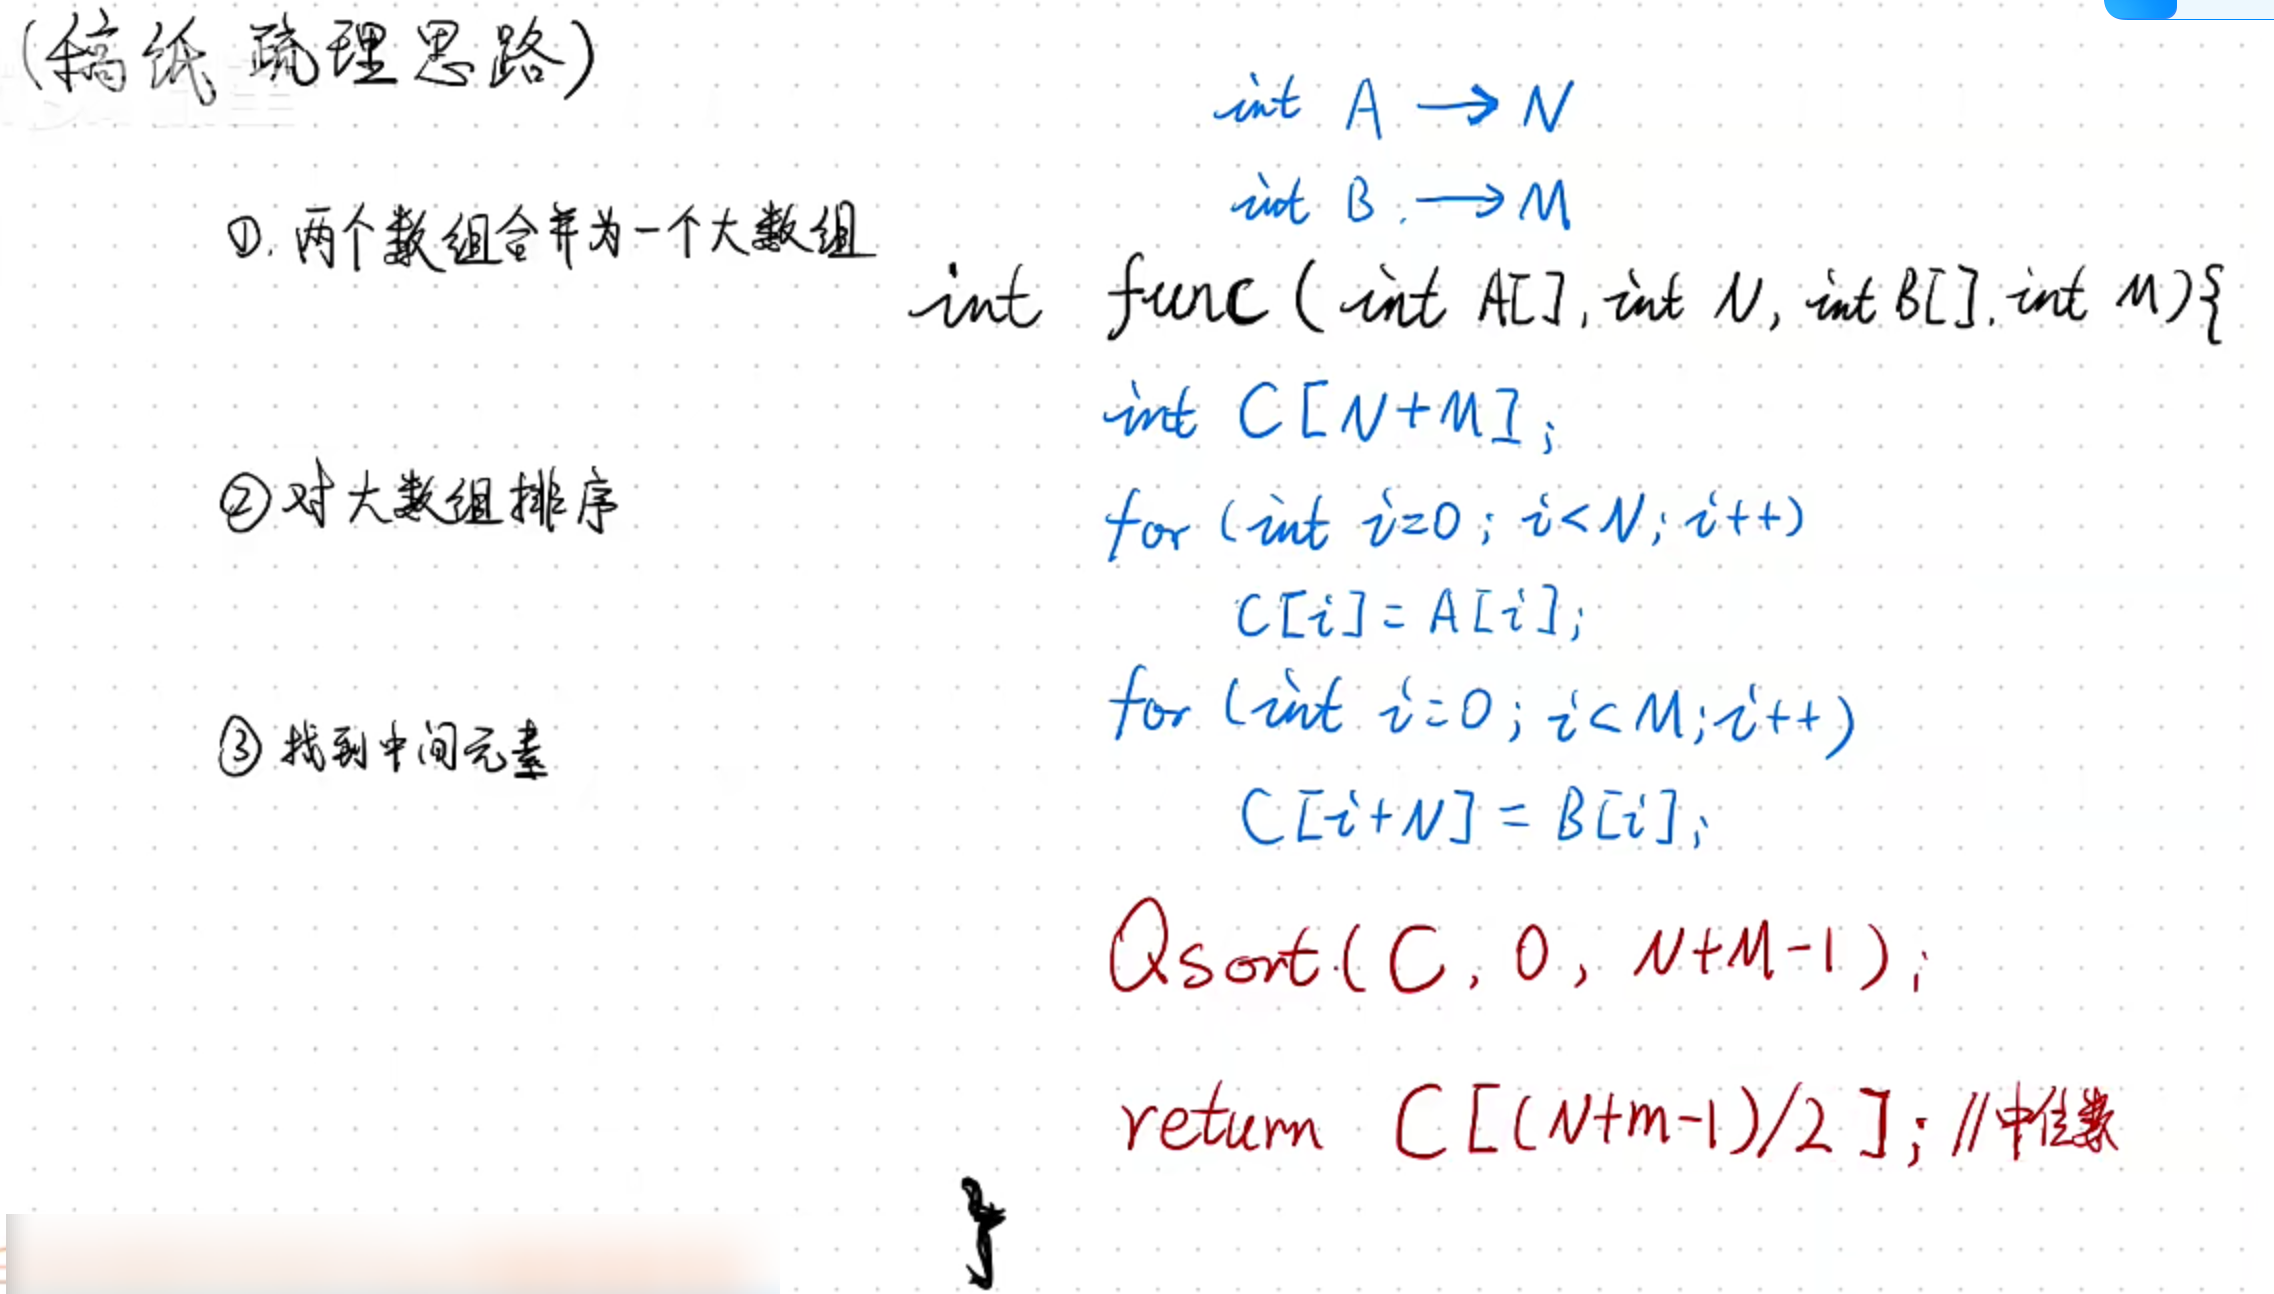 (稿纸 疏理思路)
①. 两个数组合并为一个大数组
②对大数组排序
③找到中间元素
int A → N
int B. → M
int func ( int A[], int N, int B[], int M){
int C[N+M];
for (int i=0; i<N; i++)
C[i]= A[i];
for (int i=0; i<M; i++)
C[i+N] = B[i];
Qsort(C, 0, N+M-1);
return C[(N+m-1)/2]; //中位数
}